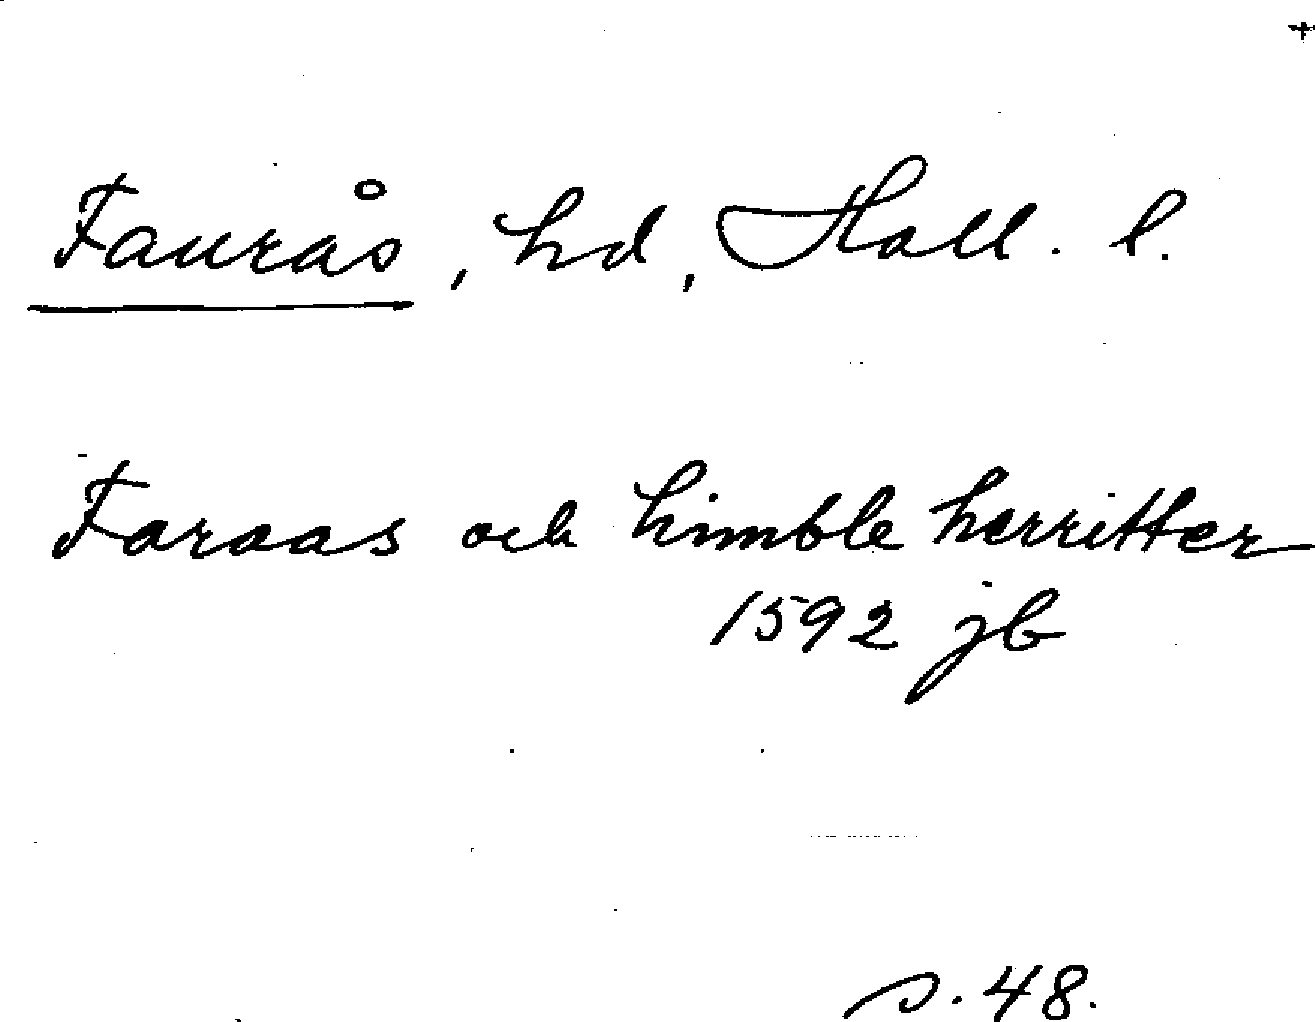 Faurås, hd, Hall. l.
Faraas och himble herritter
1592 jb
s. 48.